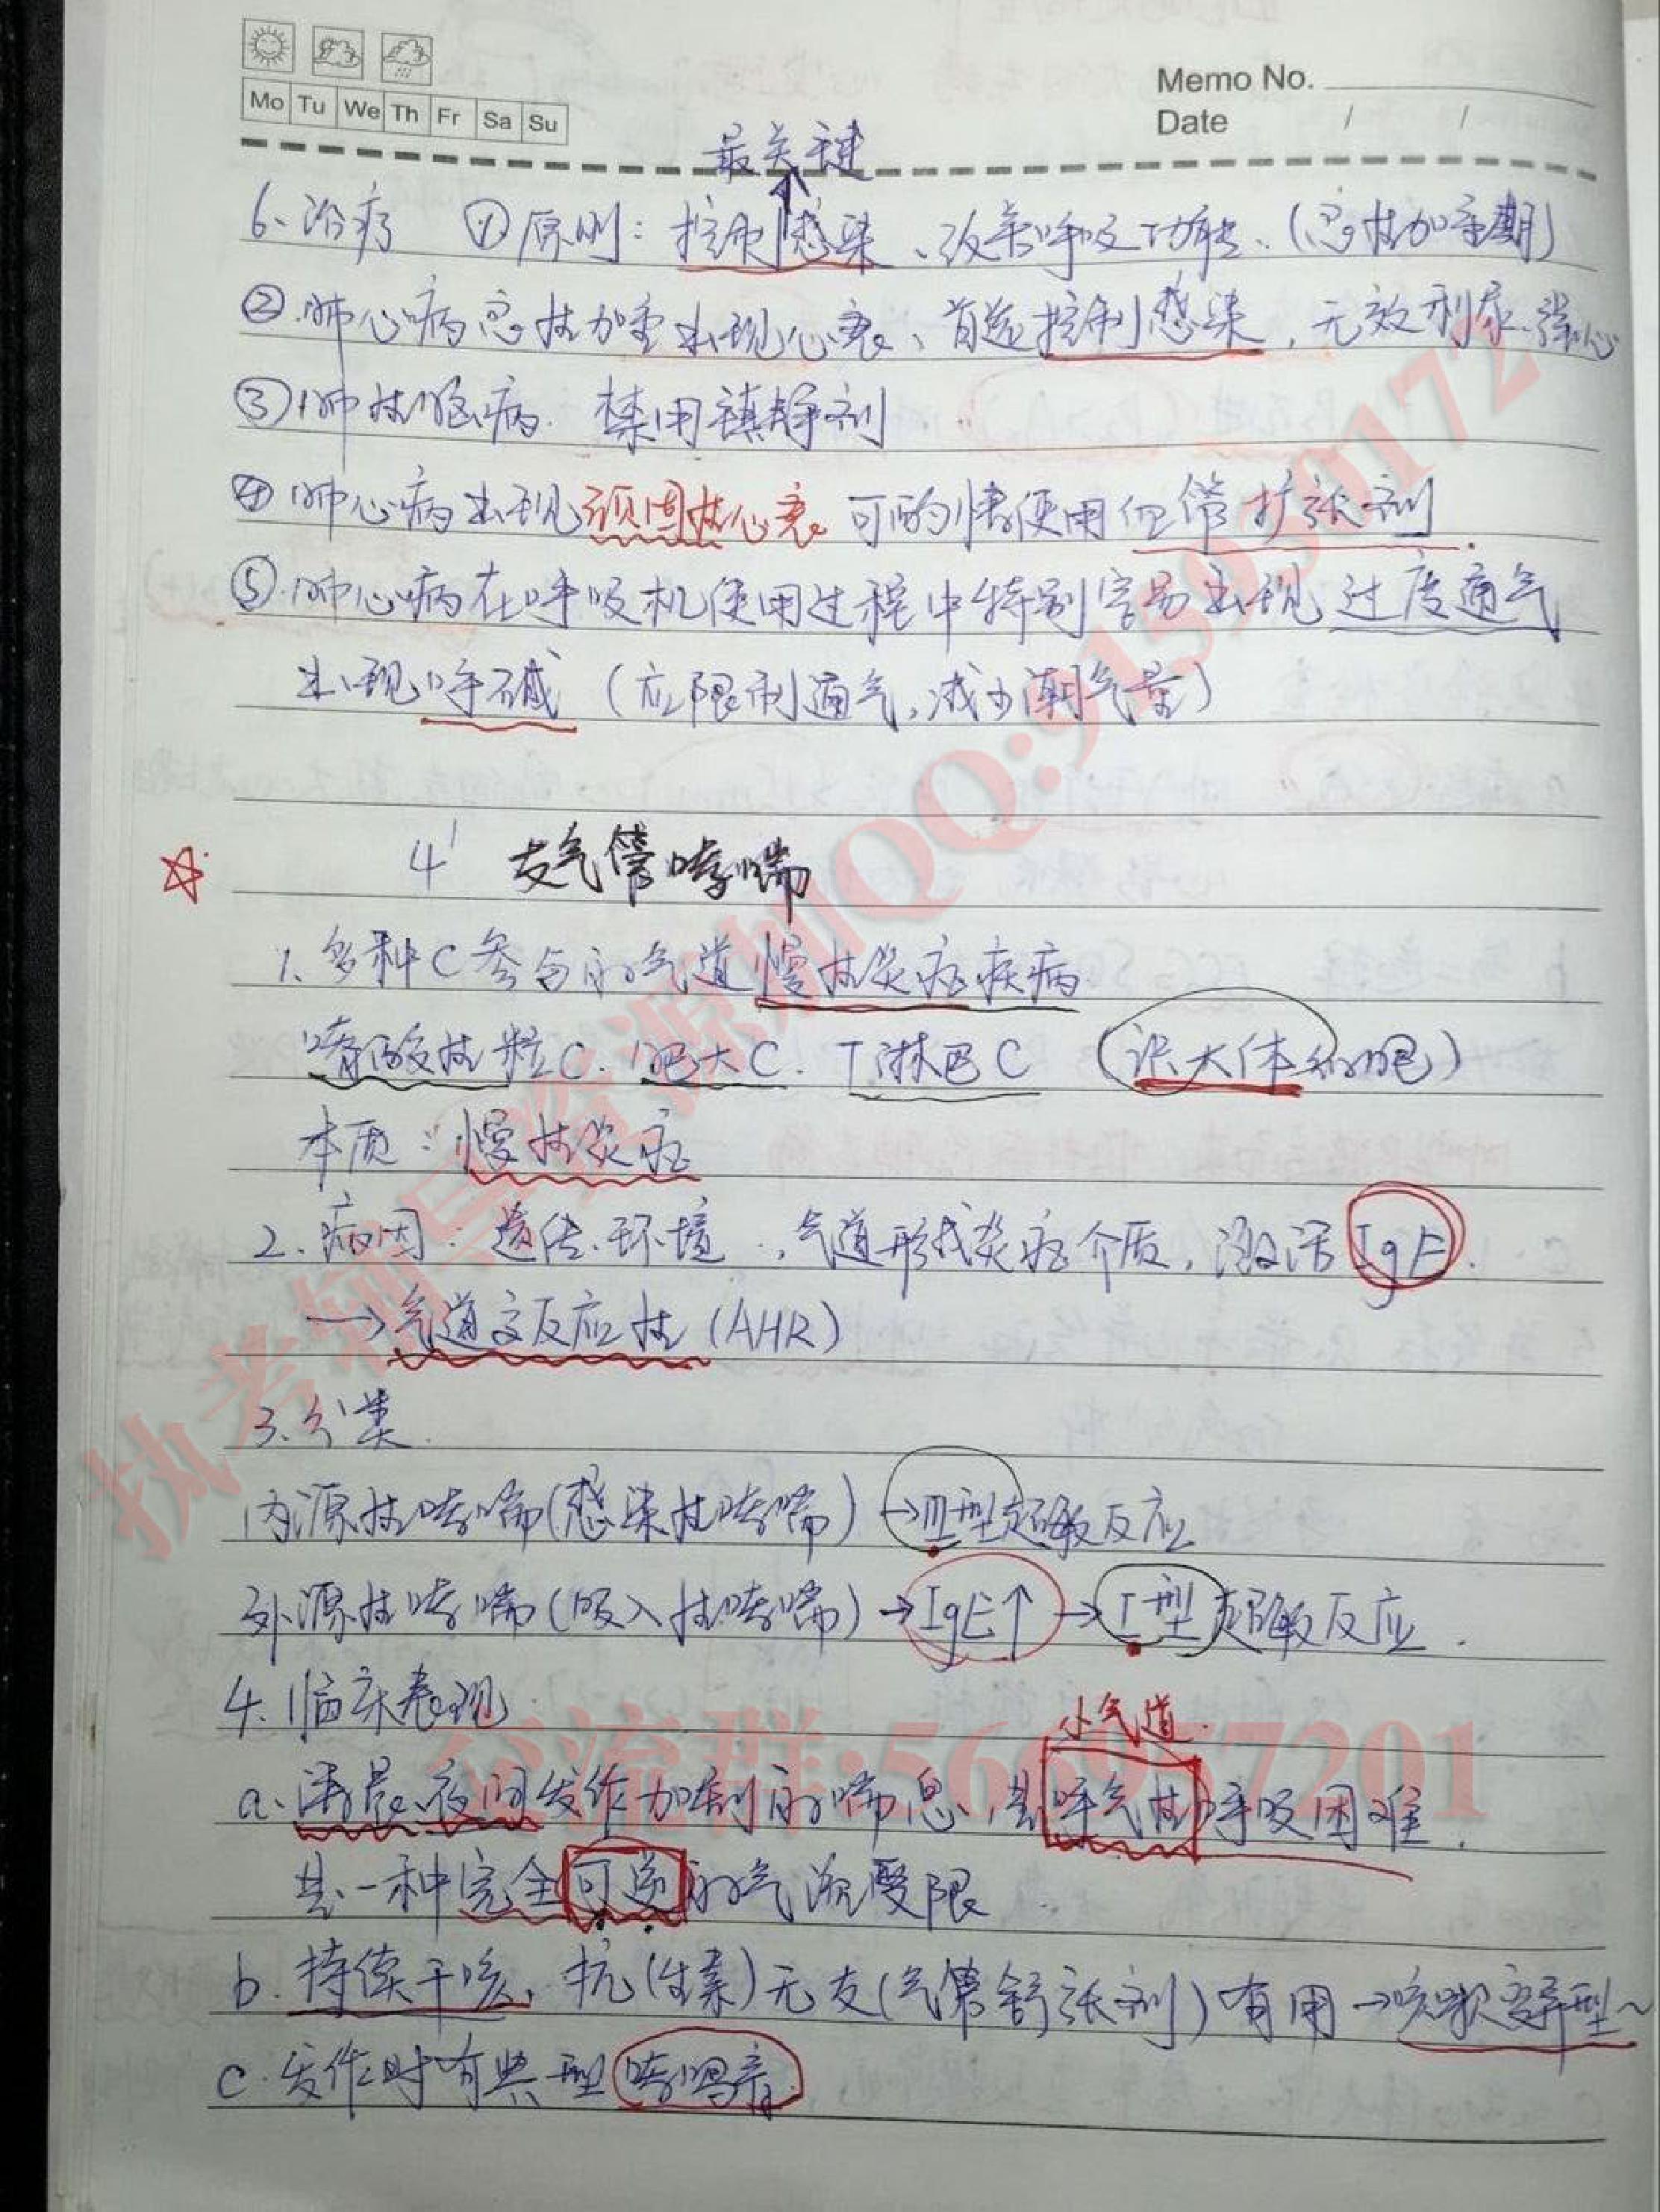 Memo No.
Mo Tu We Th Fr Sa Su
Date / /
最关键
6、治疗 ①原则：控制感染、改善呼吸功能、(急性加重期)
②.肺心病急性加重出现心衰、首选控制感染，无效利尿、强心
③肺性脑病. 禁用镇静剂
④肺心病出现顽固性心衰 可酌情使用血管扩张剂.
⑤.肺心病在呼吸机使用过程中特别容易出现过度通气
出现呼碱 (应限制通气,减少潮气量)
4' 支气管哮喘
1、多种C参与的气道慢性炎症疾病
嗜酸性粒C. 肥大C. T淋巴C (浆大体细胞)
本质：慢性炎症
2、病因：遗传、环境 .,气道形成炎症介质, 激活 IgE.
→气道高反应性 (AHR)
3、分类.
内源性哮喘(感染性哮喘) →Ⅲ型超敏反应
外源性哮喘(吸入性哮喘) →IgE↑→Ⅰ型超敏反应.
4、临床表现.
小气道.
a、清晨、夜间发作加剧的喘息、其呼气性呼吸困难.
是一种完全可逆的气流受限
b. 持续干咳、抗(生素)无支(气管舒张剂)有用→咳嗽变异型~
c. 发作时有典型哮鸣音.
执考领导资源加QQ:915930172
交流群:566957201